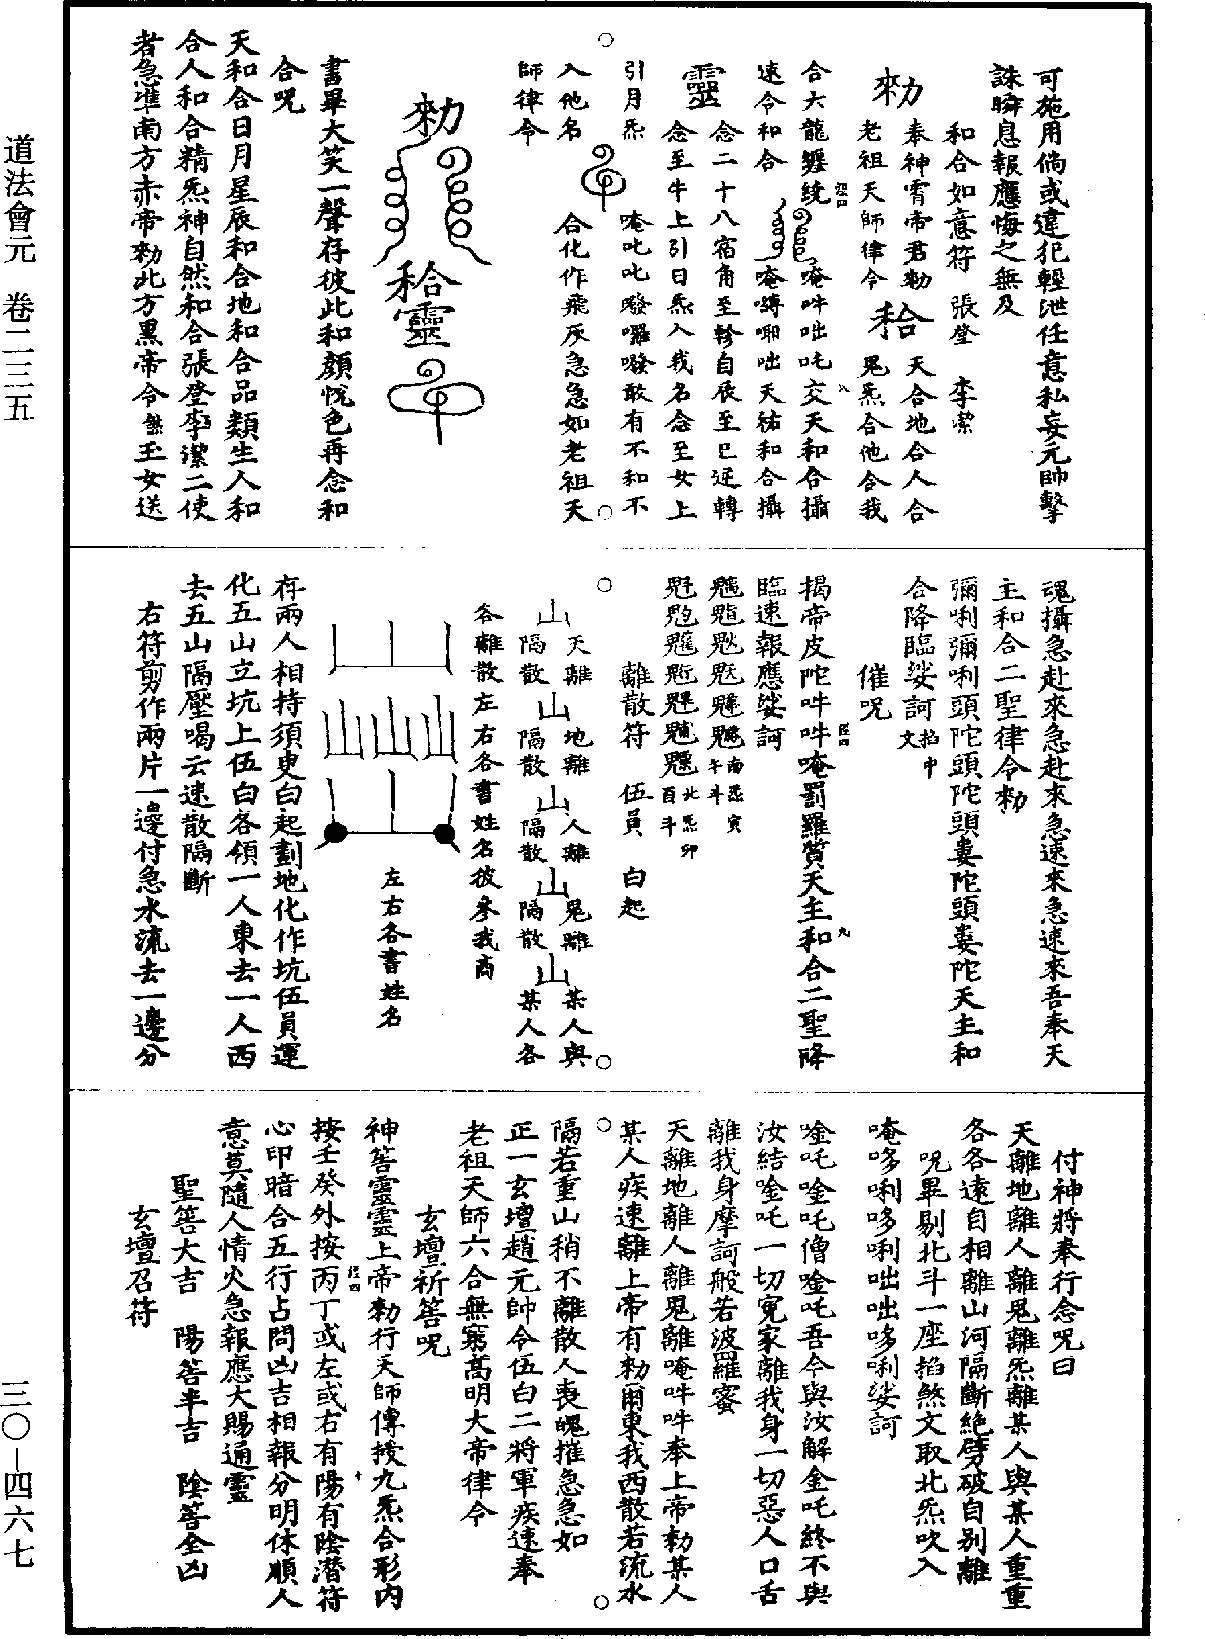 道法會元　卷二三五
三〇—四六七
可施用倘或違犯輕泄任意私妄元帥擊
誅瞬息報應悔之無及
和合如意符　張登　李潔
勑　奉神霄帝君勑
老祖天師律令
和合　天合地合人合
鬼炁合他合我
合六龍纏繞
唵吽咄吒交天和合攝
速令和合
唵囀啣咄天祐和合攝
靈　念二十八宿角至軫自辰至巳逆轉
念至牛上引日炁入我名念至女上
引月炁
唵叱叱㗶囉㗶敢有不和不
入他名
合化作飛灰急急如老祖天
師律令
勑
靈
書畢大笑一聲存彼此和顏悅色再念和
合咒
天和合日月星辰和合地和合品類生人和
合人和合精炁神自然和合張登李潔二使
者急準南方赤帝勑北方黑帝令無玉女送
魂攝急赴來急赴來急速來急速來吾奉天
主和合二聖律令勑
彌唎彌唎頭陀頭陀頭婁陀頭婁陀天主和
合降臨娑訶掐中文
催咒
揭帝皮陀吽吽唵罰羅質天主和合二聖降
臨速報應娑訶
南炁寅午斗
北炁卯酉斗
離散符　伍員　白起
山　天離　隔散
山　地離　隔散
山　人離　隔散
山　鬼離　隔散
山　某人與某人各
各離散左右各書姓名彼參我商
左右各書姓名
存兩人相持須臾白起劃地化作坑伍員運
化五山立坑上伍白各領一人東去一人西
去五山隔壓喝云速散隔斷
右符剪作兩片一邊付急水流去一邊分
付神將奉行念咒曰
天離地離人離鬼離炁離某人與某人重重
各各遠自相離山河隔斷絕劈破自別離
咒畢剔北斗一座掐煞文取北炁吹入
唵哆唎哆唎咄咄哆唎娑訶
唫吒唫吒僧唫吒吾今與汝解金吒終不與
汝結唫吒一切冤家離我身一切惡人口舌
離我身摩訶般若波羅蜜
天離地離人離鬼離唵吽吽奉上帝勑某人
某人疾速離上帝有勑爾東我西散若流水
隔若重山稍不離散人喪魄摧急急如
正一玄壇趙元帥令伍白二將軍疾速奉
老祖天師六合無窮高明大帝律令
玄壇祈筶咒
神筶靈靈上帝勑行天師傳授九炁合形內
按壬癸外按丙丁或左或右有陽有陰潛符
心印暗合五行占問凶吉相報分明休順人
意莫隨人情火急報應大賜通靈
聖筶大吉　陽筶半吉　陰筶全凶
玄壇召符